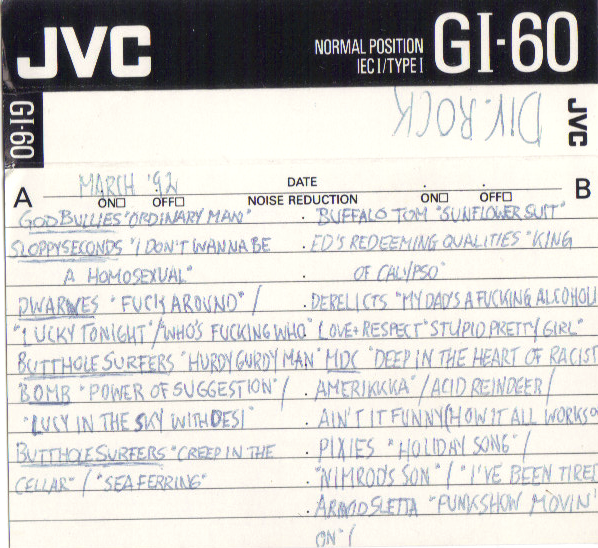 JVC
NORMAL POSITION
IEC I/TYPE I
GI-60
GI-60
DIV. ROCK
JVC
MARCH '92
DATE
A
ON☐ OFF☐
NOISE REDUCTION
ON☐ OFF☐
B
GOD BULLIES "ORDINARY MAN"
SLOPPY SECONDS "I DON'T WANNA BE
A HOMOSEXUAL"
DWARVES "FUCK AROUND" /
"LUCKY TONIGHT" / "WHO'S FUCKING WHO"
BUTTHOLE SURFERS "HURDY GURDY MAN"
BOMB "POWER OF SUGGESTION" /
"LUCY IN THE SKY WITH DESI"
BUTTHOLE SURFERS "CREEP IN THE
CELLAR" / "SEAFERRING"
BUFFALO TOM "SUNFLOWER SUIT"
ED'S REDEEMING QUALITIES "KING
OF CALYPSO"
DERELICTS "MY DAD'S A FUCKING ALCOHOLI
LOVE + RESPECT "STUPID PRETTY GIRL"
MDC "DEEP IN THE HEART OF RACIST
AMERIKKKA" / ACID REINDEER /
AIN'T IT FUNNY (HOW IT ALL WORKS O
PIXIES "HOLIDAY SONG" /
"NIMROD'S SON" / "I'VE BEEN TIRED
"PUNKSHOW MOVIN'
ON" /